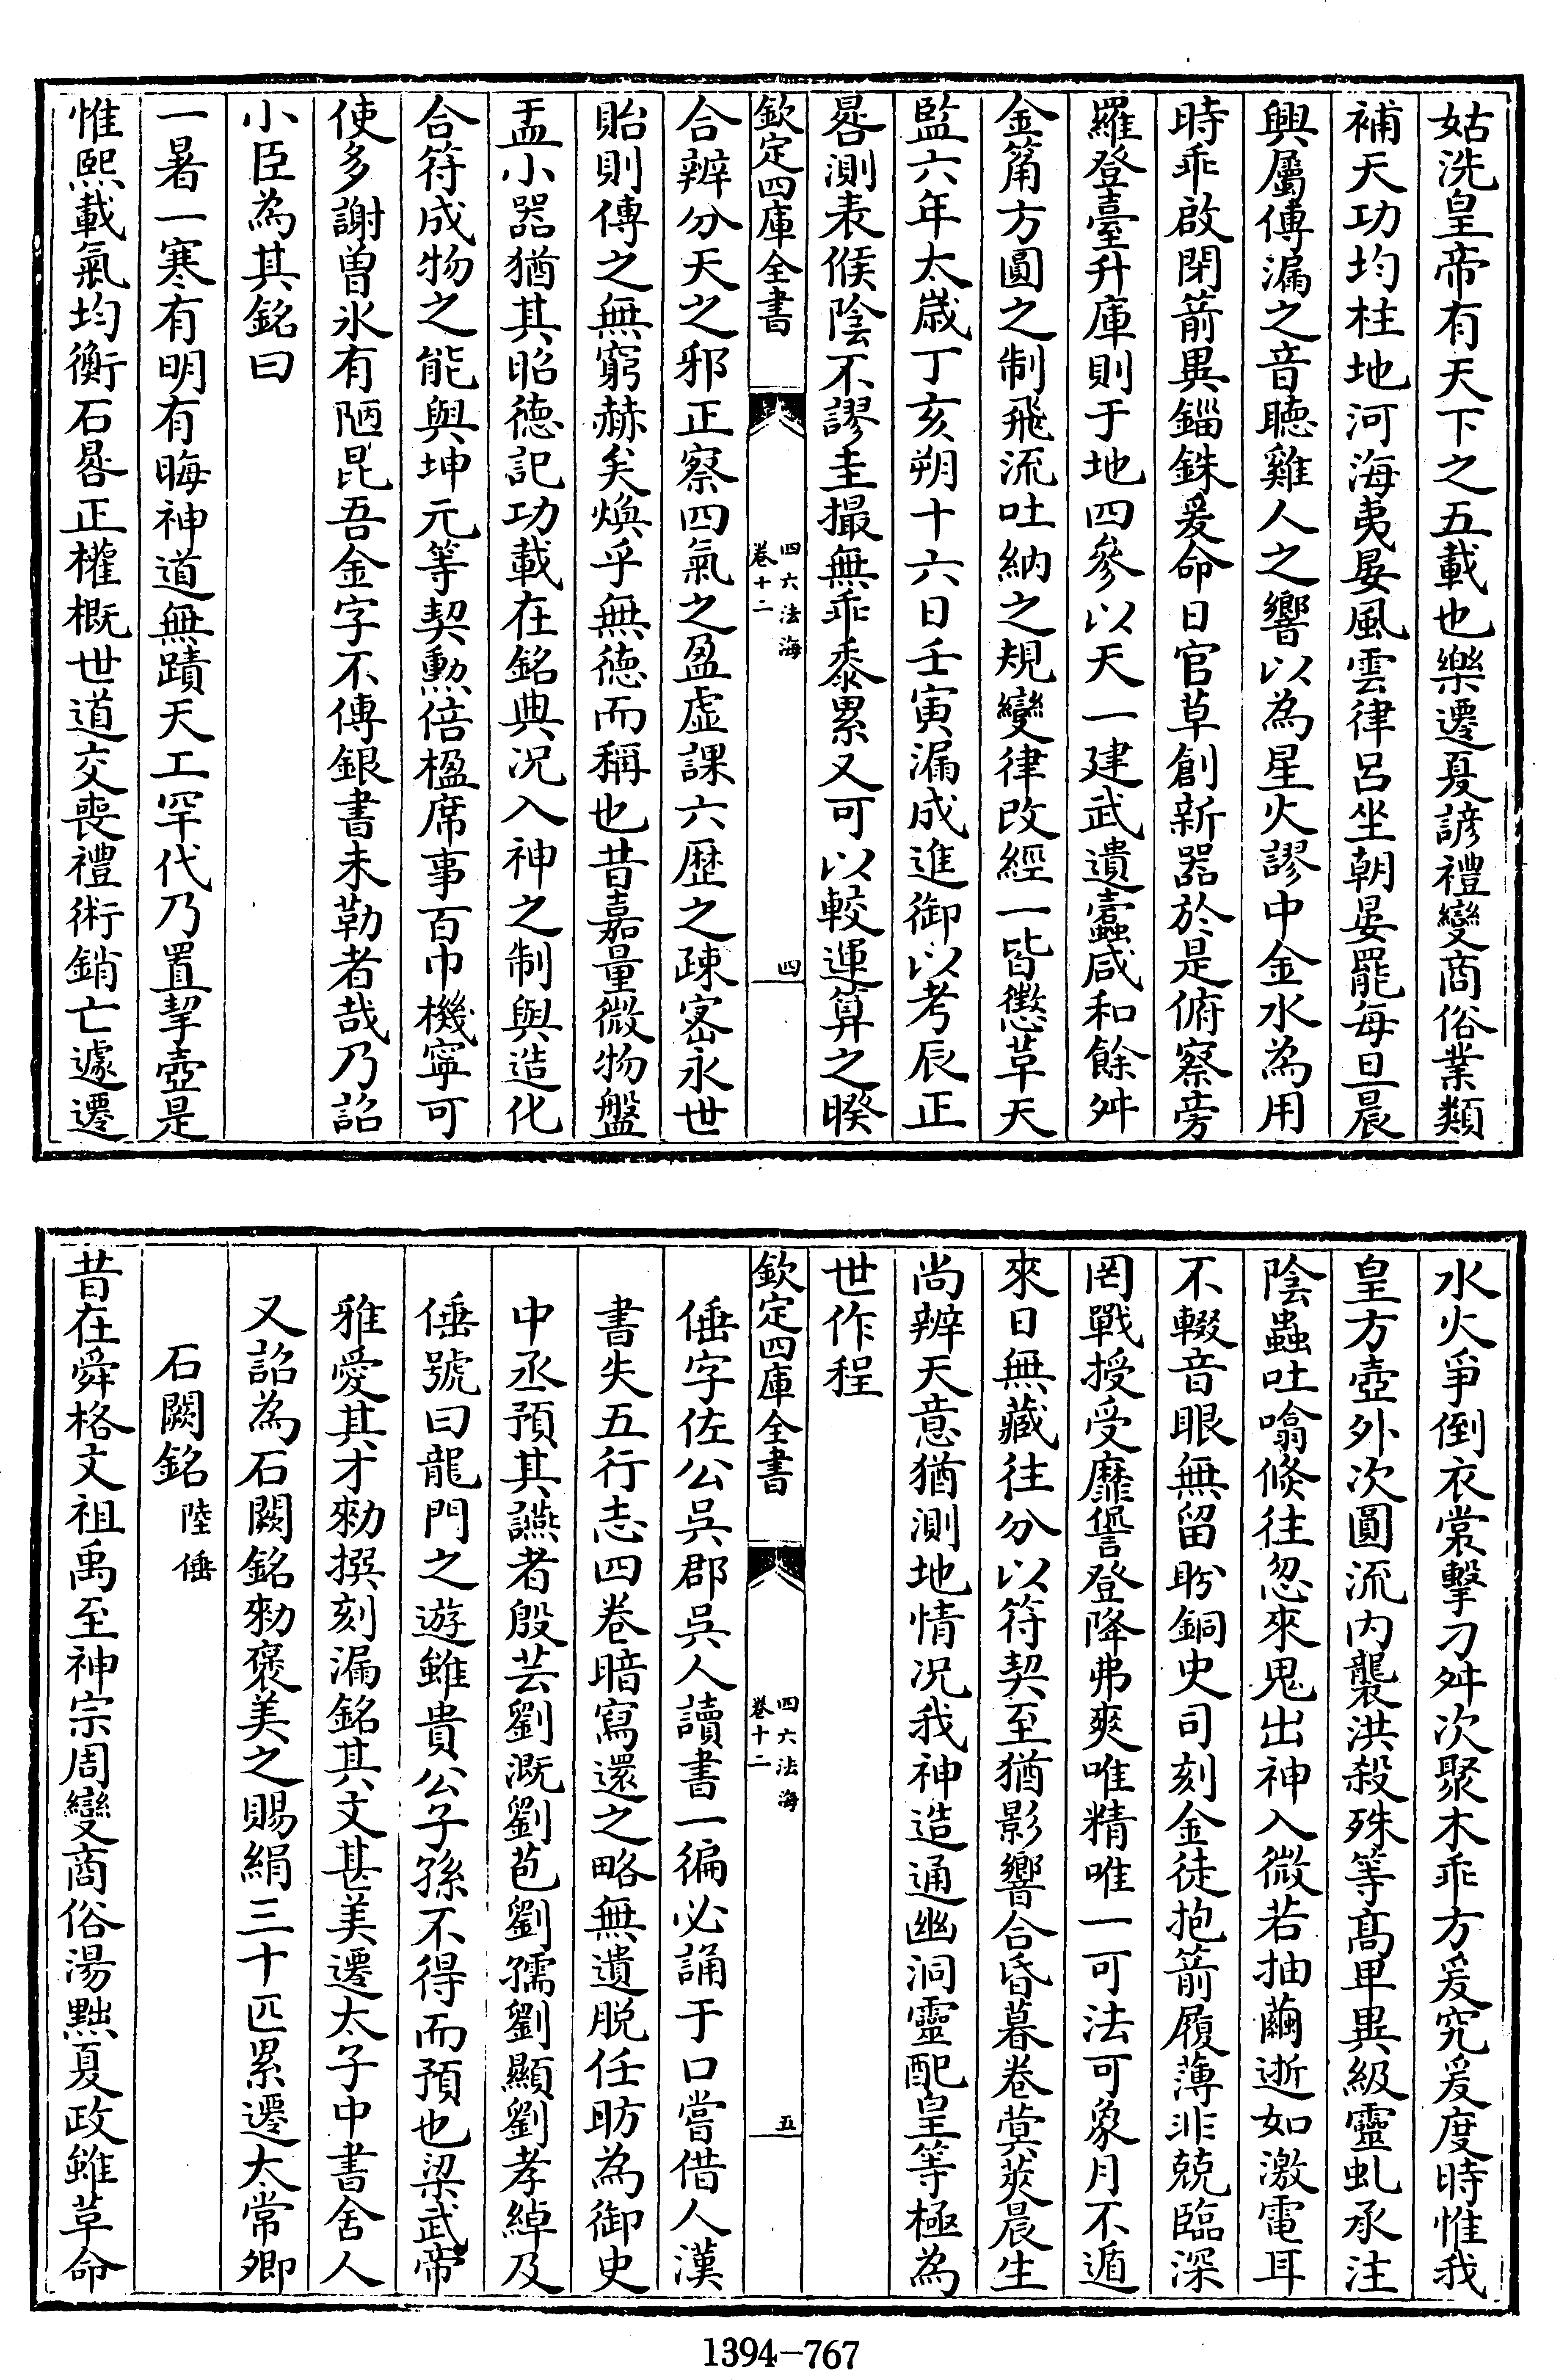 姑洗皇帝有天下之五載也樂遷夏諺禮變商俗業類
補天功均柱地河海夷晏風雲律呂坐朝晏罷每旦晨
興屬傳漏之音聽雞人之響以為星火謬中金水為用
時乖啟閉箭異錙銖爰命日官草創新器於是俯察旁
羅登臺升庫則于地四參以天一建武遺蠹咸和餘舛
金筩方圓之制飛流吐納之規變律改經一皆懲革天
監六年太歲丁亥朔十六日壬寅漏成進御以考辰正
晷測表候陰不謬圭撮無乖黍累又可以較運算之睽
欽定四庫全書
四六法海
卷十二
四
合辨分天之邪正察四氣之盈虚課六歴之疎宻永世
貽則傳之無窮赫矣煥乎無徳而稱也昔嘉量微物盤
盂小器猶其昭徳記功載在銘典况入神之制與造化
合符成物之能與坤元等契勲倍楹席事百巾機寧可
使多謝曽水有陋昆吾金字不傳銀書未勒者哉乃詔
小臣為其銘曰
一暑一寒有明有晦神道無蹟天工罕代乃置挈壺是
惟熙載氣均衡石晷正權概世道交喪禮術銷亡遽遷
水火爭倒衣裳擊刁舛次聚木乖方爰究爰度時惟我
皇方壺外次圓流内襲洪殺殊等高卑異級靈虬承注
陰蟲吐噏倏往忽來鬼出神入微若抽繭逝如激電耳
不輟音眼無留盼銅史司刻金徒抱箭履薄非兢臨深
罔戰授受靡諐登降弗爽唯精唯一可法可象月不遁
來日無藏往分以符契至猶影響合昏暮卷蓂莢晨生
尚辨天意猶測地情况我神造通幽洞靈配皇等極為
世作程
欽定四庫全書
四六法海
卷十二
五
倕字佐公吳郡吳人讀書一徧必誦于口嘗借人漢
書失五行志四卷暗寫還之略無遺脱任昉為御史
中丞預其讌者殷芸劉溉劉苞劉孺劉顯劉孝綽及
倕號曰龍門之遊雖貴公子孫不得而預也梁武帝
雅愛其才勅撰刻漏銘其文甚美遷太子中書舍人
又詔為石闕銘勅褒美之賜絹三十匹累遷太常卿
石闕銘 陸倕
昔在舜格文祖禹至神宗周變商俗湯黜夏政雖革命
1394-767